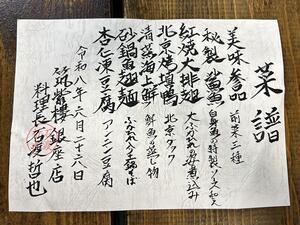 菜譜
美味参品 前菜三種
秘製鯊魚 白身魚の特製ソース和え
紅焼大排翅 大ふかひれの姿煮込み
北京焼填鴨 北京ダック
清蒸海上鮮 鮮魚の蒸し物
砂鍋魚翅麺 ふかひれ入り土鍋そば
杏仁凍豆腐 アンニン豆腐
令和八年六月二十八日
筑紫樓 銀座店
料理長 石 哲也